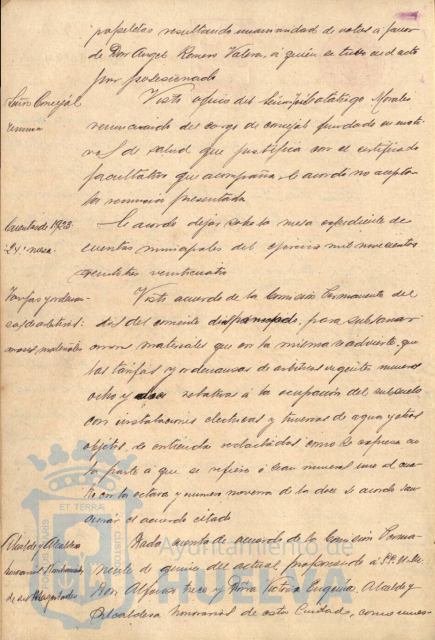 papeletas resultando unanimidad de votos a favor
de Don Angel Romero Valera, a quien se tuvo en el acto
por posesionado
Señor Concejal
renuncia
Visto oficio del Señor Morales
renunciando del cargo de concejal fundado en moti-
vos de salud que justifica con el certificado
facultativo que acompaña, se acordó no aceptar
la renuncia presentada
Cuentas de 1923-
24 mesa.
Se acordó dejar sobre la mesa expediente de
cuentas municipales del ejercicio mil novecientos
veintitres veinticuatro
Tarifas y ordenan-
zas de arbitrios:
errores materiales
Visto acuerdo de la Comision Permanente del
dia del corriente para subsanar
errores materiales que en la misma se advierte, que
las tarifas y ordenanzas de arbitrios vigentes numeros
ocho y doce relativas á la ocupación del subsuelo
con instalaciones electricas y tuverias de agua y otros
objetos, se entienda redactadas como se expresa en
la parte a que se refiere ó sean numeral uno al cua-
tro en la octava y numero noveno de la doce se acordó san-
cionar el acuerdo citado
Alcalde y Alcaldesa
honorarios
de sus Majestades
Dada cuenta de acuerdo de la Comisión Perma-
nente de quince del actual proponiendo á SS. M. M.
Don Alfonso trece y Doña Victoria Eugenia, Alcalde y
Alcaldesa honorarios de esta Ciudad, como
Ayuntamiento de
HUELVA
PORTUS MARIS
ET TERRAE
CUSTODIA